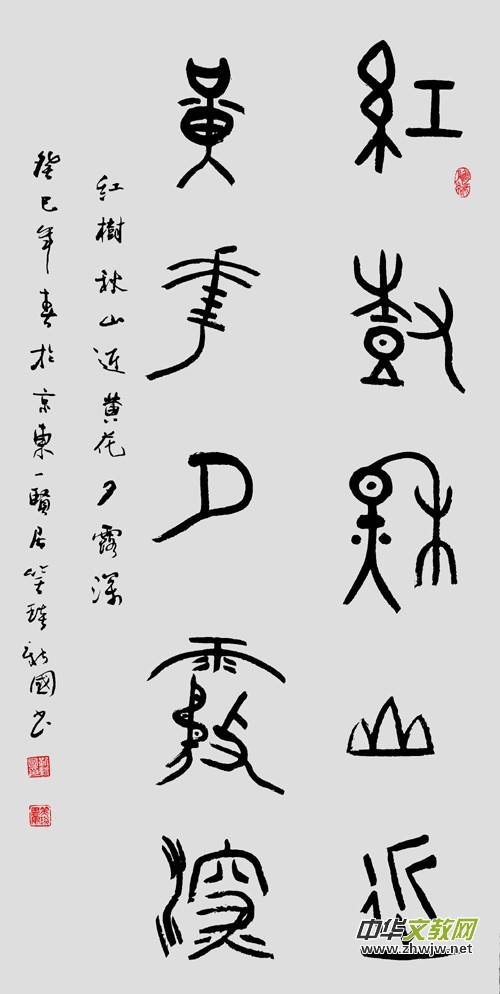 紅樹秋山近
黃花夕露深
红樹秋山近黄花夕露深
癸巳年春於京東一賢居
國书
中华文教网
www.zhwjw.net